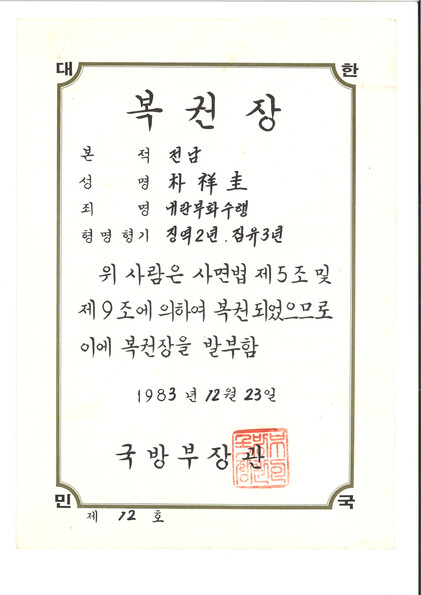 대 한
복 권 장
본 적 전남
성 명 朴 祥 圭
죄 명 내란부화수행
형명형기 징역2년. 집유3년
위 사람은 사면법 제5조 및
제9조에 의하여 복권되었으므로
이에 복권장을 발부함
1983 년 12월 23일
국방부장관
민 국
제 12 호